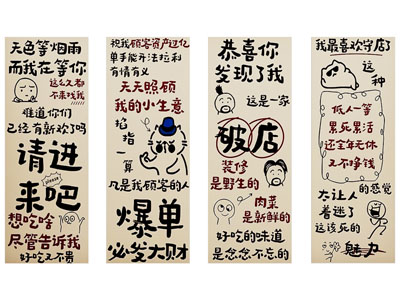 天色等烟雨
而我在等你
这么久都
不来找我
难道你们
已经有新欢了吗
请进
来吧
想吃啥
尽管告诉我
好吃又不贵
祝我顾客资产过亿
单手能开法拉利
有情有义
天天照顾
我的小生意
掐指
一算
凡是我顾客的人
爆单
必发大财
恭喜你
发现了我
这是一家
破店
装修
是野生的
肉菜
是新鲜的
好吃的味道
是念念不忘的
我最喜欢守店了
这
种
低人一等
累死累活
还全年无休
又不挣钱
的感觉
太让人
着迷了
这该死的
魅力